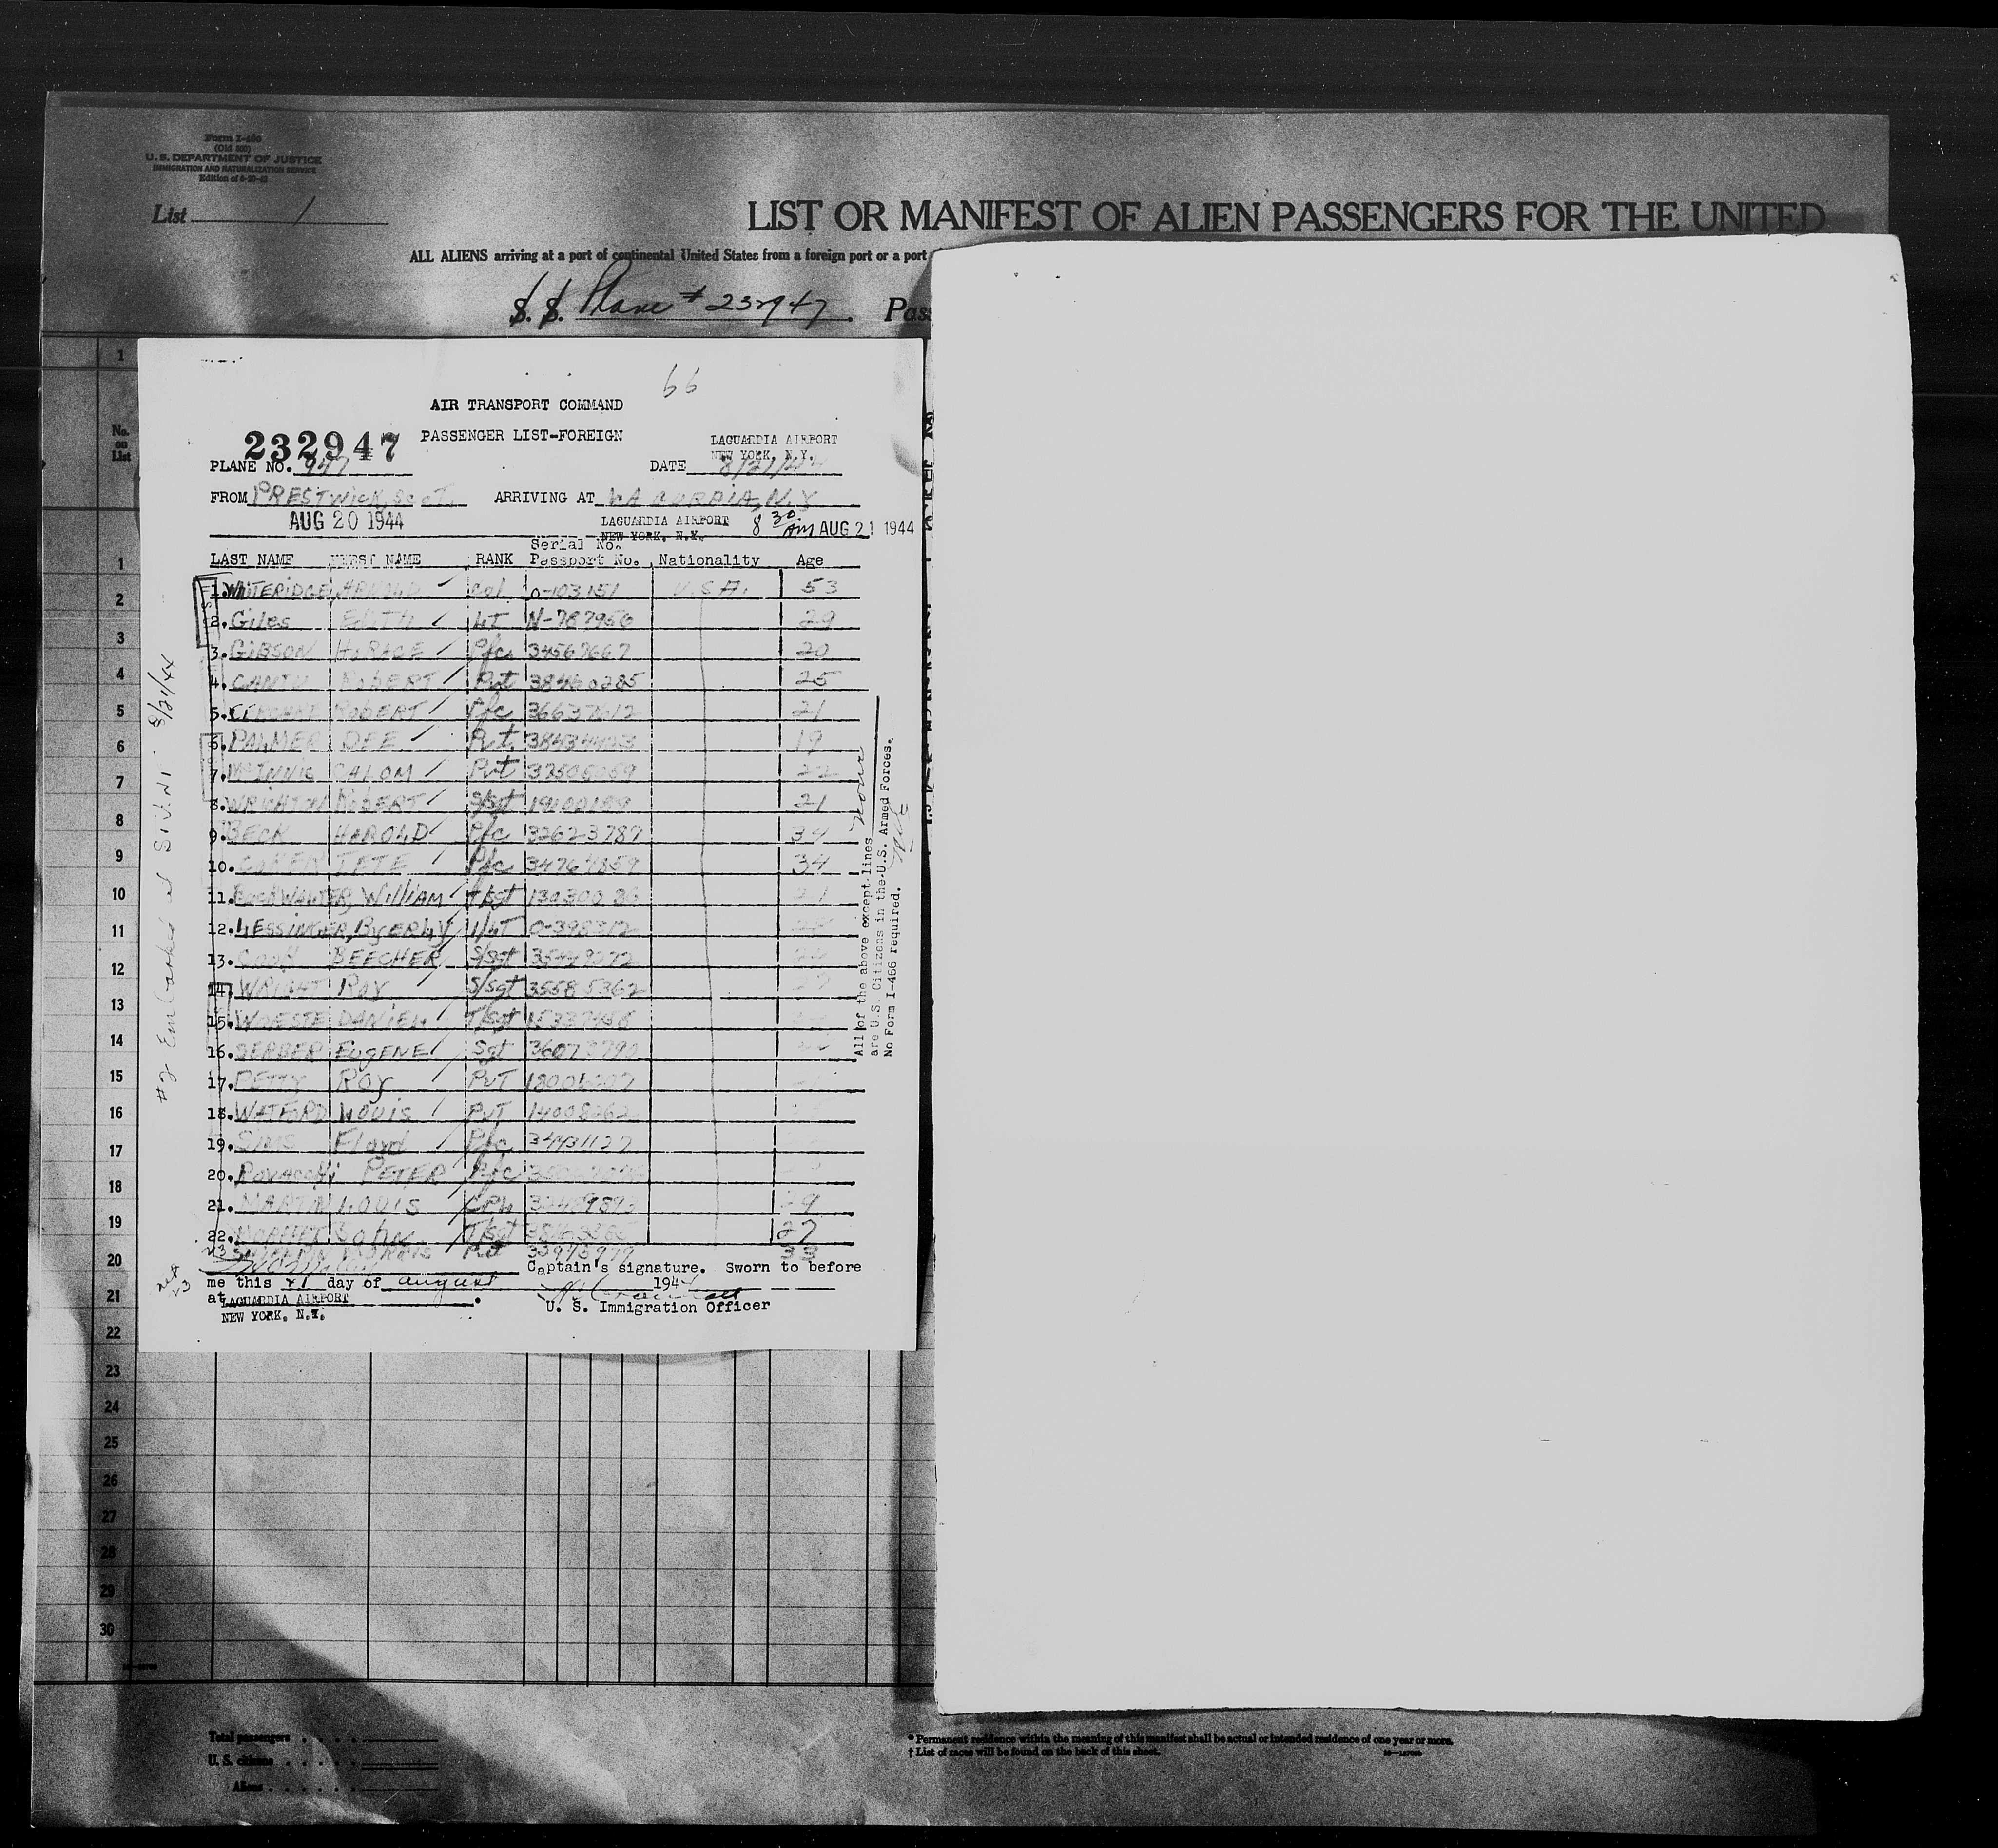 Form I-466
(Old 500)
U. S. DEPARTMENT OF JUSTICE
IMMIGRATION AND NATURALIZATION SERVICE
List 1
LIST OR MANIFEST OF ALIEN PASSENGERS FOR THE UNITED
ALL ALIENS arriving at a port of continental United States from a foreign port or a port
S. S. Plane # 232947. Pass
66
AIR TRANSPORT COMMAND
232947 PASSENGER LIST-FOREIGN
LAGUARDIA AIRPORT
NEW YORK, N.Y.
PLANE NO. 947 DATE 8/21/44
FROM PRESTWICK, SCOT. ARRIVING AT LA GURDIA, N.Y
AUG 20 1944 LAGUARDIA AIRPORT 8 30 AM AUG 21 1944
NEW YORK, N.Y.
LAST NAME FIRST NAME RANK Serial No. Passport No. Nationality Age
1. WHITERIDGE, ARNOLD Col 0-103151 U.S.A. 53
2. Giles EDITH LT N-787956 29
3. GIBSON HORACE Pfc 34567667 20
4. CANTU ROBERT Pvt 38460285 25
5. ROBERT Pfc 36637612 21
6. PALMER DEE Pvt. 38434423 19
7. McINNIS CALOM Pvt 22
8. WRIGHTON ROBERT S/Sgt 21
9. BECK HAROLD Pfc 32623787 34
10. TETE Pfc 34764859 34
11. WILLIAM T/Sgt 13030086
12. LESSINGER, BYERLY 1/LT 0-398312
13. BEECHER S/Sgt
14. WRIGHT ROY S/Sgt 35585362
15. WOESTE DANIEL T/Sgt 15337458
16. GERBER EUGENE Sgt 36073790
17. PETTY ROY PVT 18006207
18. WATFORD LOUIS PVT 14008262
19. SIMS Floyd Pfc 34431127
20. PETER Pfc
21. MARTIN LOUIS CPL 29
22. John T/Sgt 27
23 MORRIS Pvt 33943979 33
Captain's signature. Sworn to before
me this 21 day of August 1944
at LAGUARDIA AIRPORT
NEW YORK, N.Y.
U. S. Immigration Officer
All of the above except lines none
are U.S. Citizens in the U.S. Armed Forces.
No Form I-466 required.
#2 Embarked at 8/21/44
No.
on
List
1
1
2
3
4
5
6
7
8
9
10
11
12
13
14
15
16
17
18
19
20
21
22
23
24
25
26
27
28
29
30
Total passengers
U. S. citizens
Aliens
* Permanent residence within the meaning of this manifest shall be actual or intended residence of one year or more.
† List of races will be found on the back of this sheet.